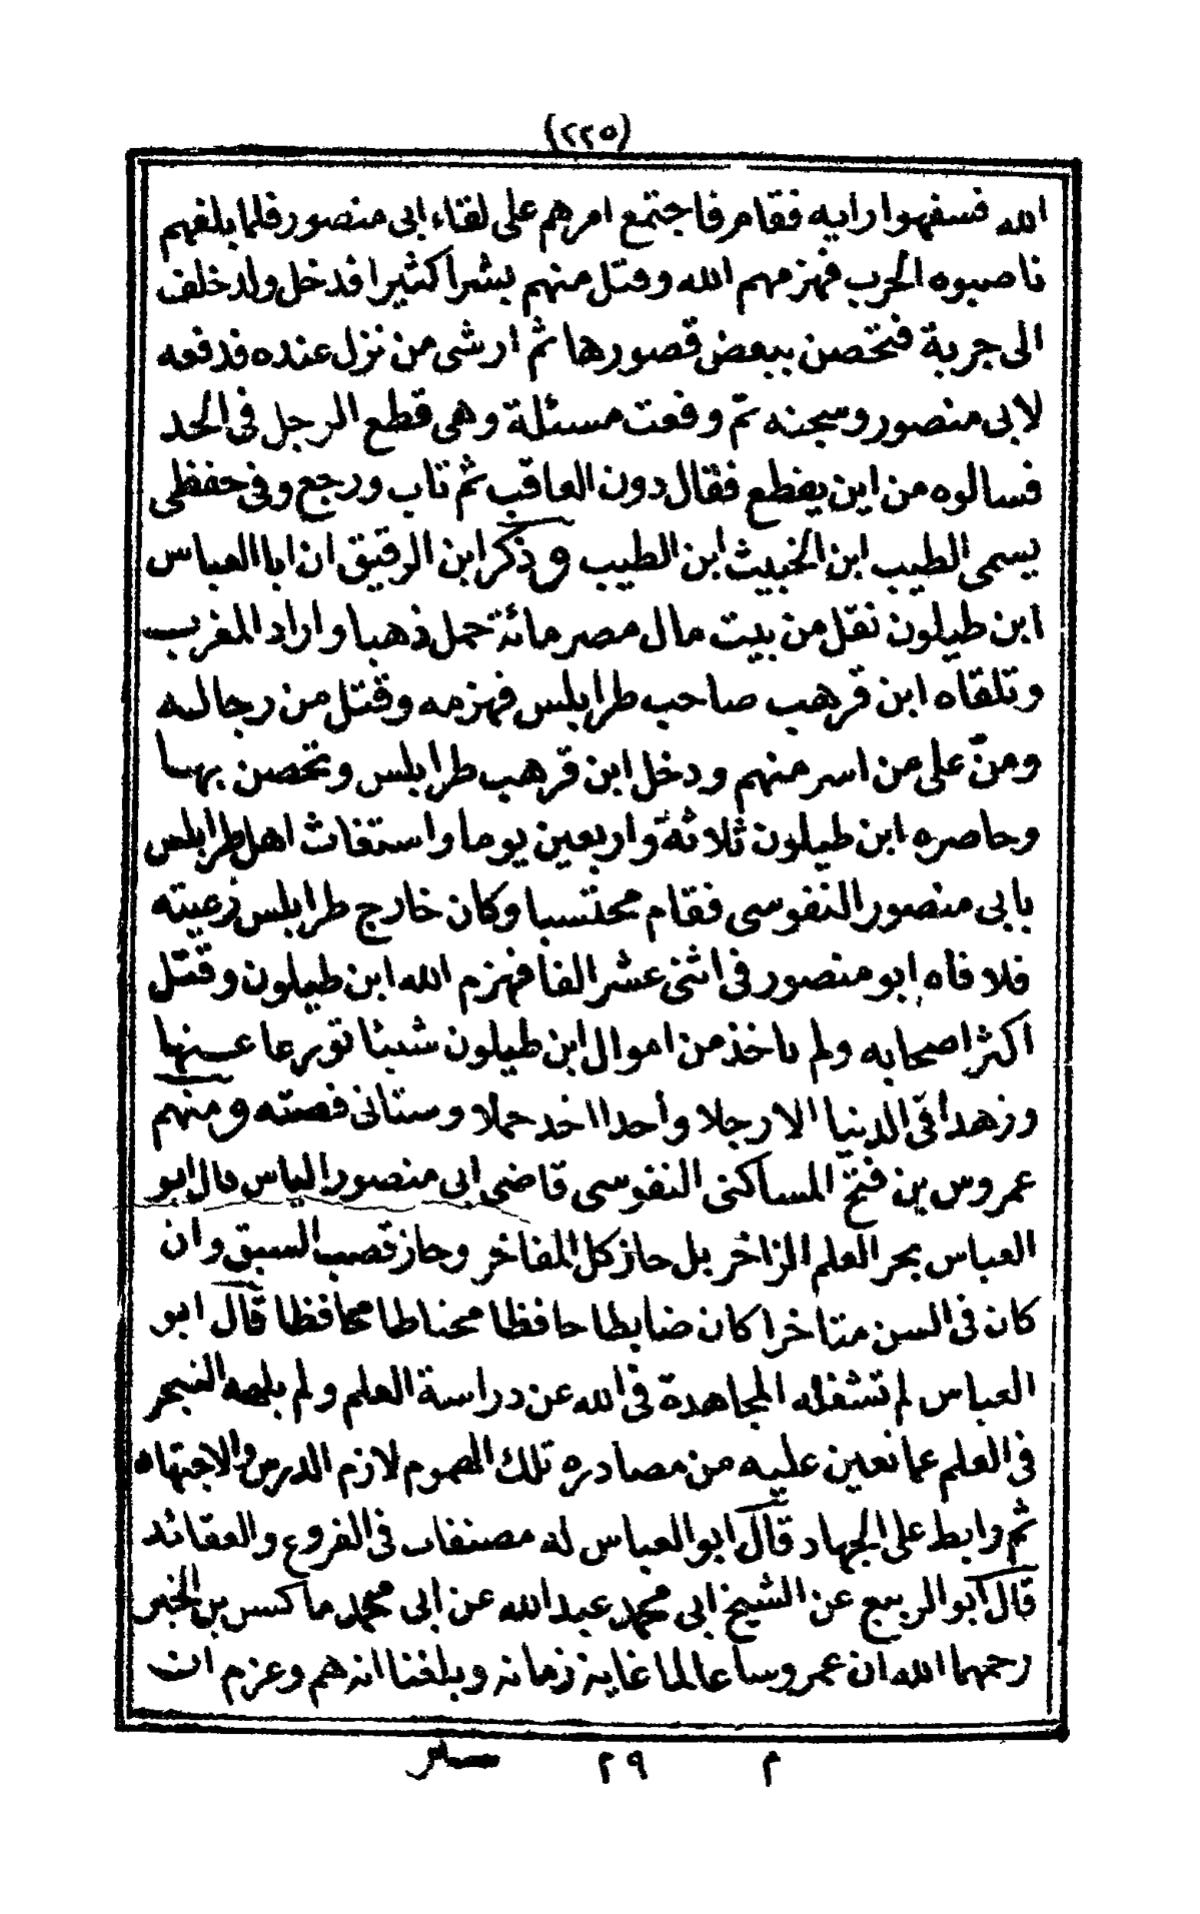 (٢٢٥)
الله فسفهوا رايه فقامر فاجتمع امرهم على لقاء ابى منصور فلما بلغهم
ناصبوه الحرب فهزمهم الله وقتل منهم بشرا كثيرا فدخل ولد خلف
الى جربة فتحصن ببعض قصورها ثم ارشى من نزل عنده فدفعه
لابى منصور وسجنه ثم وقعت مسئلة وهى قطع الرجل فى الحد
فسالوه من اين يقطع فقال دون العاقب ثم تاب ورجع وفى حفظى
يسمى الطيب ابن الخبيث ابن الطيب وذكر ابن الرقيق ان ابا العباس
ابن طيلون نقل من بيت مال مصر مائة حمل ذهبا واراد المغرب
وتلقاه ابن قرهب صاحب طرابلس فهزمه وقتل من رجاله
ومنّ على من اسر منهم ودخل ابن قرهب طرابلس وتحصن بها
وحاصره ابن طيلون ثلاثة واربعين يوما واستغاث اهل طرابلس
بابى منصور النفوسى فقام محتسبا وكان خارج طرابلس رعيته
فلاقاه ابو منصور فى اثنى عشر الفا فهزم الله ابن طيلون وقتل
اكثر اصحابه ولم ياخذ من اموال ابن طيلون شيئا تورعا عنها
وزهدا فى الدنيا الا رجلا واحدا اخذ حملا وستاتى قصته ومنهم
عمروس بن فتح المساكنى النفوسى قاضى ابى منصور الياس قال ابو
العباس بحر العلم الزاخر بل حاز كل المفاخر وحاز قصب السبق وان
كان فى السن متاخرا كان ضابطا حافظا محتاطا محافظا قال ابو
العباس لم تشغله المجاهدة فى الله عن دراسة العلم ولم يلهه التبحر
فى العلم عما تعين عليه من مصادره تلك الهموم لازم الدرس والاجتهاد
ثم رابط على الجهاد قال ابو العباس له مصنفات فى الفروع والعقائد
قال ابو الربيع عن الشيخ ابى محمد عبد الله عن ابى محمد ماكسن بن الخير
رحمهما الله ان عمروسا عالما غاية زمانه وبلغنا انه هم وعزم ان
م ٢٩ سير